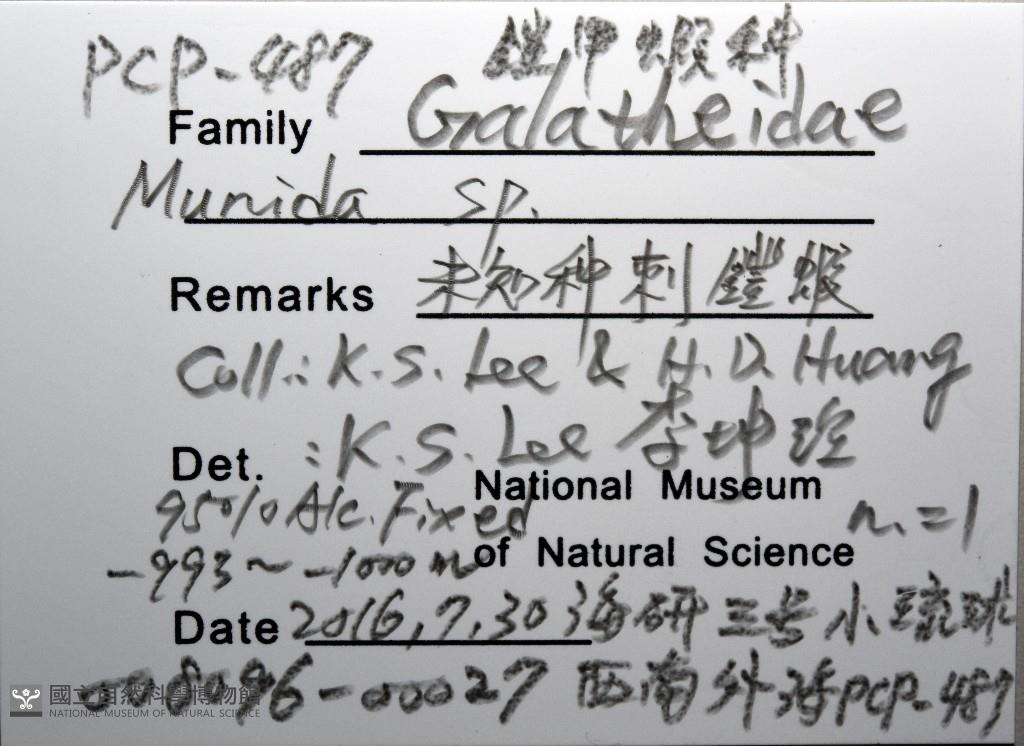 PCP-487 鎧甲蝦种
Family Galatheidae
Munida sp.
Remarks 未知种刺鎧蝦
Coll.: K.S. Lee & H.D. Huang
Det. : K.S. Lee 李坤瑄
95% Alc. Fixed National Museum n.=1
-993~-1000m of Natural Science
Date 2016,7,30 海研三号小琉球
-00027 西南外海PCP-487
國立自然科學博物館
NATIONAL MUSEUM OF NATURAL SCIENCE